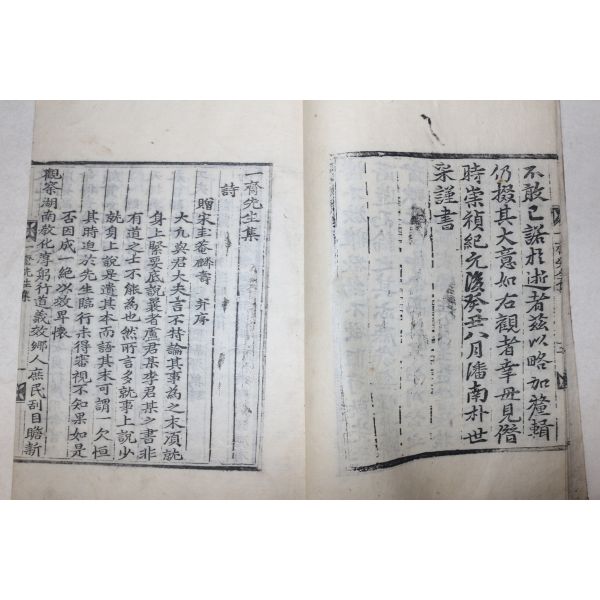 不敢已諾於逝者玆以略加釐輯
仍掇其大意如右觀者幸毋見僭
時崇禎紀元後癸丑八月潘南朴世
采謹書
一齋先生集
詩
贈宋圭菴麟壽 幷序
大凡與君大夫言不特論其事爲之末須就
身上緊要底說曩者盧君某李君某之書非
有道之士不能爲也然所言多就事上說少
就身上說是遺其本而語其末可謂
欠恒
其時迫於先生臨行未得審視不知果如是
否因成一絶以效卑懷
觀察湖南敎化淳躬行道義效鄉人庶民刮目瞻新
一齋先生集